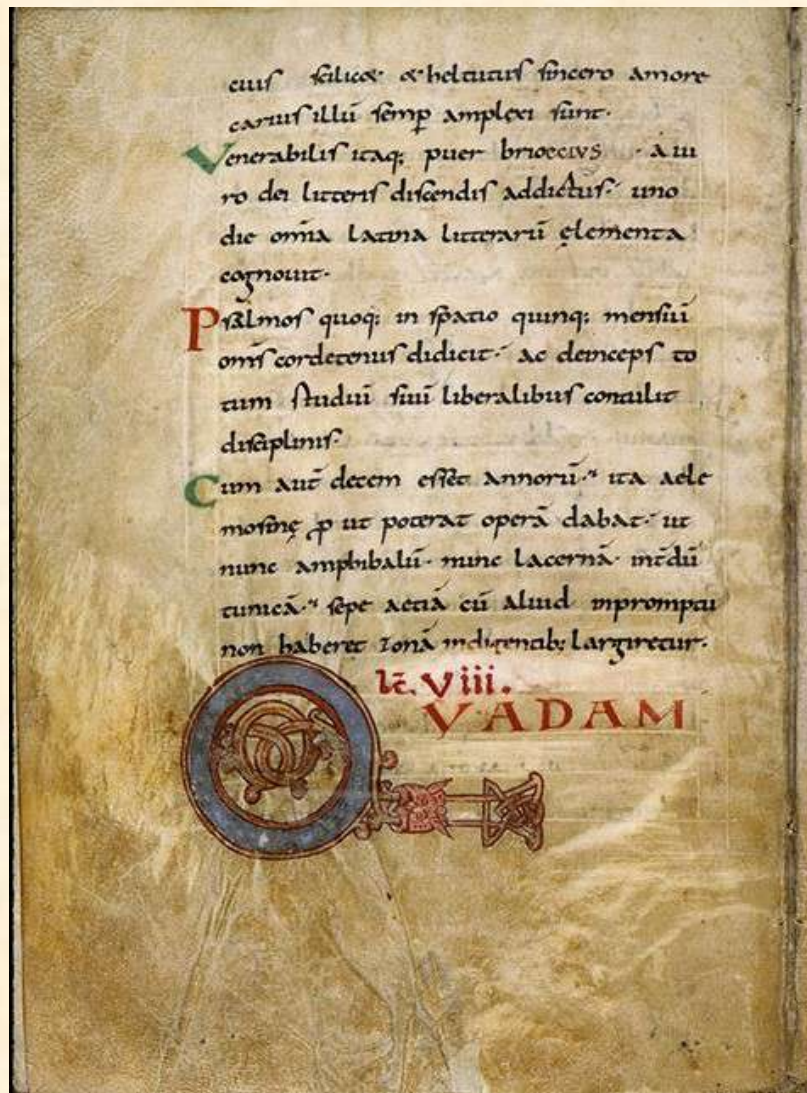 cuius scilic& & heltutus sincero amore
carius illū semp̄ amplexi sunt·
Venerabilis itaq; puer brioccius · A ui
ro dei litteris discendis addictus·' uno
die om̄ia latina litterarū ęlementa
cognouit·
Psalmos quoq; in spatio quinq; mensiū
om̄s cordetenus didicit·' ac deinceps to
tum studiū suū liberalibus contulit
disciplinis·'
Cum aut̄ decem esset annorū·' ita aele
mosinę ꝓ ut poterat operā dabat·' ut
nunc amphibalū· nunc lacernā· int̄dū
tunicā·' sepe aetiā cū aliud inpromptu
non haberet zonā indigentib; largiretur·
lc̄. viii.
QVADAM